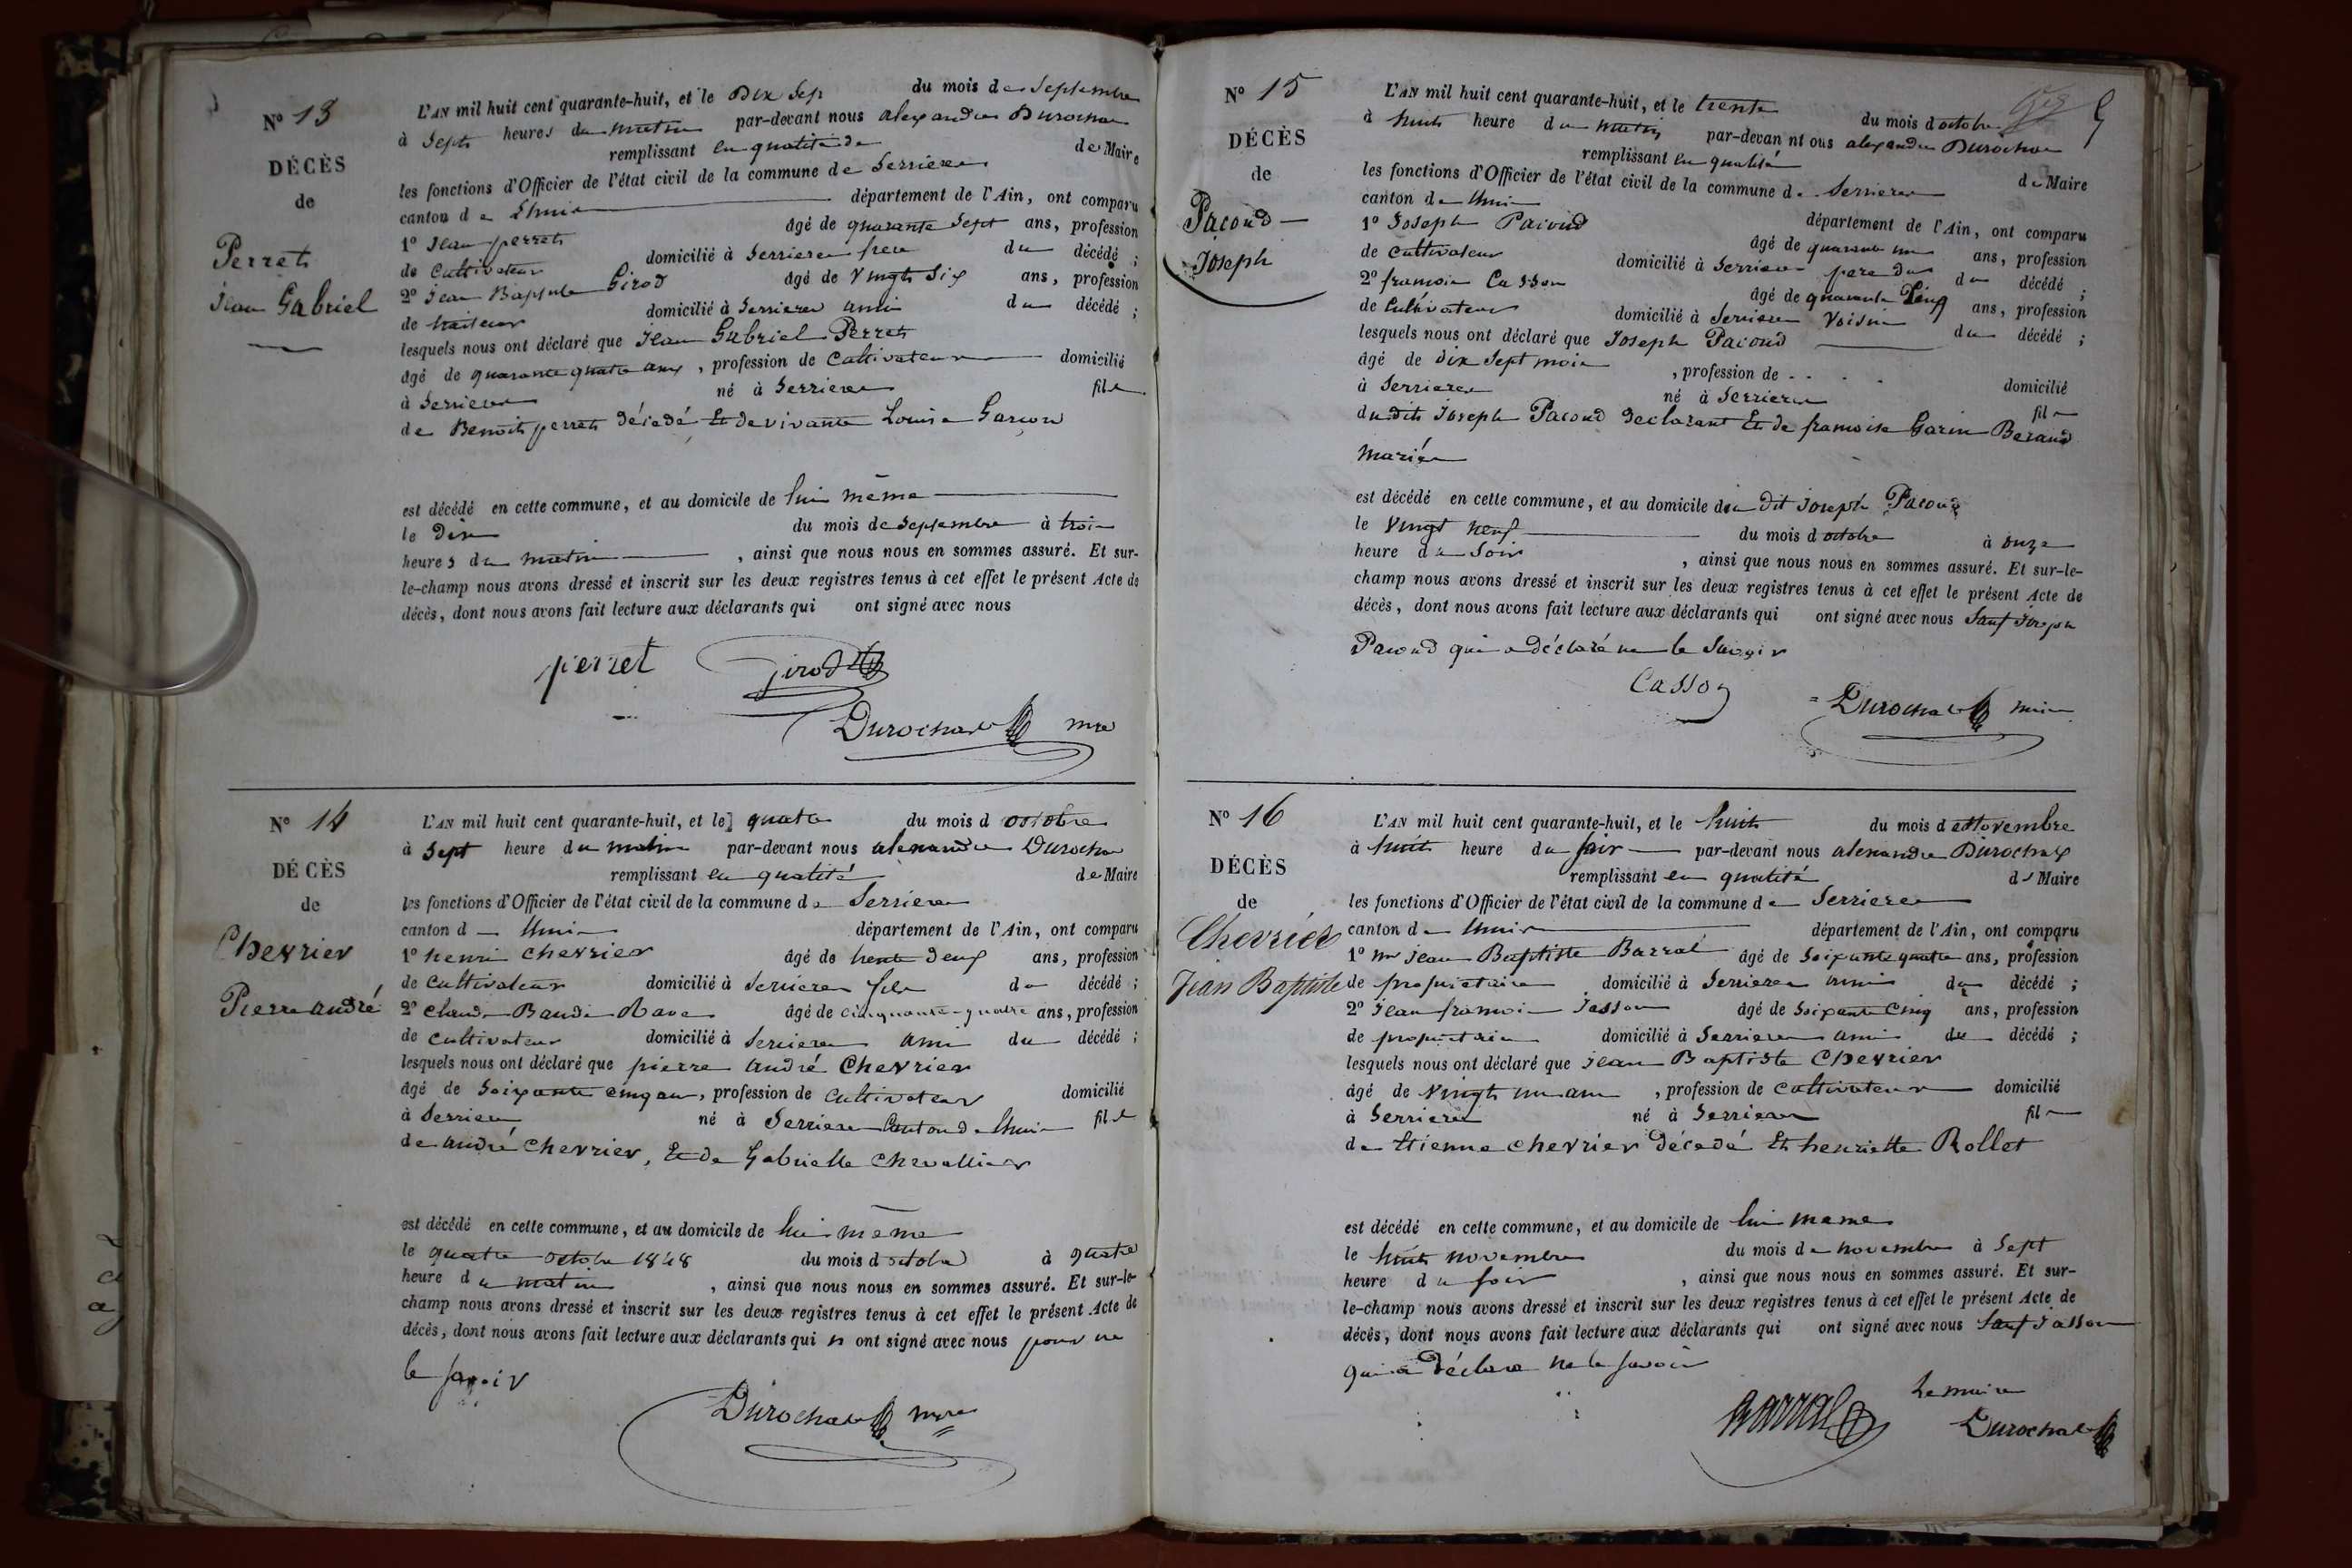 N° 13
DÉCÈS
de
Perret
Jean Gabriel
L'AN mil huit cent quarante-huit, et le Dix Sep du mois de Septembre
à Sept heures du matin par-devant nous alexandre Durochat
remplissant en qualité de de Maire
les fonctions d'Officier de l'état civil de la commune de Serrieres
canton de Lhuis département de l'Ain, ont comparu
1° Jean perret âgé de quarante Sept ans, profession
de Cultivateur domicilié à Serrieres frere du décédé ;
2° Jean Baptiste Girod âgé de Vingt Six ans, profession
de traiteur domicilié à Serrieres ami du décédé ;
lesquels nous ont déclaré que Jean Gabriel Perret
âgé de quarante quatre ans, profession de Cultivateur domicilié
à Serrieres né à Serrieres fils
de Benoit perret décédé Et de vivante Louise Garçon
est décédé en cette commune, et au domicile de lui même
le dix du mois de Septembre à trois
heures du matin , ainsi que nous nous en sommes assuré. Et sur-
le-champ nous avons dressé et inscrit sur les deux registres tenus à cet effet le présent Acte de
décès, dont nous avons fait lecture aux déclarants qui ont signé avec nous
perret Girod
Durochat mre
N° 14
DÉCÈS
de
Chevrier
Pierre andré
L'AN mil huit cent quarante-huit, et le quatre du mois d octobre
à Sept heure du matin par-devant nous alexandre Durochat
remplissant en qualité de Maire
les fonctions d'Officier de l'état civil de la commune de Serrieres
canton d Lhuis département de l'Ain, ont comparu
1° henri chevrier âgé de trente deux ans, profession
de Cultivateur domicilié à Serrieres fils du décédé ;
2° Claude Baudin âgé de cinquante-quatre ans, profession
de cultivateur domicilié à Serrieres ami du décédé ;
lesquels nous ont déclaré que pierre andré Chevrier
âgé de Soixante cinq ans, profession de Cultivateur domicilié
à Serrieres né à Serrieres Canton de Lhuis fils
de andré Chevrier, Et de Gabrielle Chevallier
est décédé en cette commune, et au domicile de lui même
le quatre octobre 1848 du mois d octobre à quatre
heure du matin , ainsi que nous nous en sommes assuré. Et sur-le-
champ nous avons dressé et inscrit sur les deux registres tenus à cet effet le présent Acte de
décès, dont nous avons fait lecture aux déclarants qui n ont signé avec nous pour ne
le savoir
Durochat mre
N° 15
DÉCÈS
de
Pacoud
Joseph
L'AN mil huit cent quarante-huit, et le trente du mois d octobre
à huit heure du matin par-devan nt ous alexandre Durochat
remplissant en qualité de Maire
les fonctions d'Officier de l'état civil de la commune de Serrieres
canton de Lhuis département de l'Ain, ont comparu
1° Joseph Pacoud âgé de quarante un ans, profession
de Cultivateur domicilié à Serrieres pere du du décédé ;
2° francois Casson âgé de quarante Cinq ans, profession
de Cultivateur domicilié à Serrieres Voisin du décédé ;
lesquels nous ont déclaré que Joseph Pacoud
âgé de dix Sept mois , profession de . . . . domicilié
à Serrieres né à Serrieres fils
du dit Joseph Pacoud declarant Et de francoise Garin Beraud
Mariés
est décédé en cette commune, et au domicile du Dit Joseph Pacoud
le Vingt neuf du mois d octobre à onze
heure du Soir , ainsi que nous nous en sommes assuré. Et sur-le-
champ nous avons dressé et inscrit sur les deux registres tenus à cet effet le présent Acte de
décès, dont nous avons fait lecture aux déclarants qui ont signé avec nous Sauf Joseph
Pacoud qui a déclaré ne le Savoir
Casson
Durochat
N° 16
DÉCÈS
de
Chevrier
Jean Baptiste
L'AN mil huit cent quarante-huit, et le huit du mois de Novembre
à huit heure du soir par-devant nous alexandre Durochat
remplissant en qualité de Maire
les fonctions d'Officier de l'état civil de la commune de Serrieres
canton de Lhuis département de l'Ain, ont comparu
1° mr Jean Baptiste Barral âgé de Soixante quatre ans, profession
de propriétaire domicilié à Serrieres ami du décédé ;
2° Jean francois Jasson âgé de Soixante Cinq ans, profession
de propriétaire domicilié à Serrieres ami du décédé ;
lesquels nous ont déclaré que Jean Baptiste Chevrier
âgé de Vingt un ans , profession de Cultivateur domicilié
à Serrieres né à Serrieres fils
de Etienne chevrier décedé Et henriette Rollet
est décédé en cette commune, et au domicile de lui meme
le huit novembre du mois de novembre à Sept
heure du soir , ainsi que nous nous en sommes assuré. Et sur-
le-champ nous avons dressé et inscrit sur les deux registres tenus à cet effet le présent Acte de
décès, dont nous avons fait lecture aux déclarants qui ont signé avec nous Sauf Jasson
qui a déclaré ne le savoir
Le maire
Barral Durochat